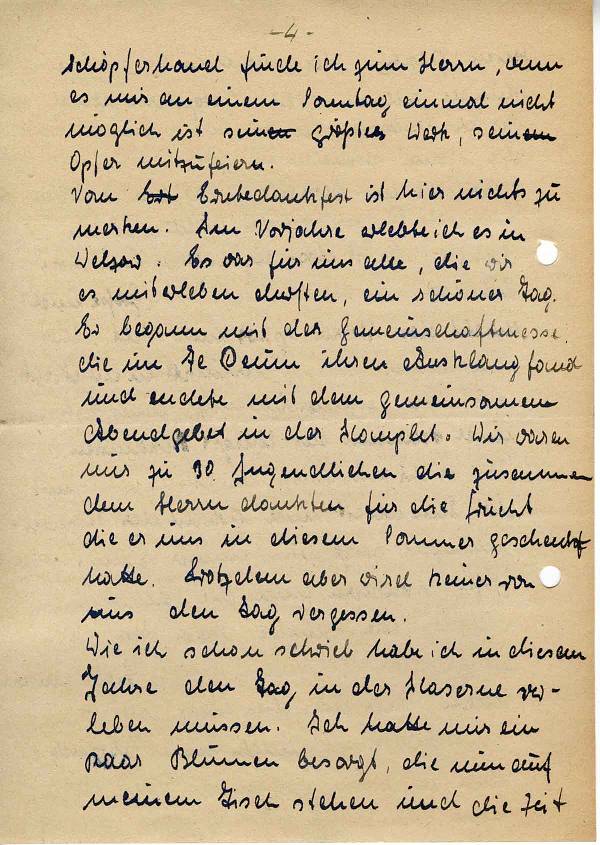 -4-
Schöpferhand finde ich zum Herrn, wenn
es mir an einem Sonntag einmal nicht
möglich ist sein größtes Werk, sein
Opfer mitzufeiern.
Vom Ert Erntedankfest ist hier nichts zu
merken. Im Vorjahre erlebte ich es in
Welzow. Es war für uns alle, die wir
es miterleben durften, ein schöner Tag.
Er begann mit der Gemeinschaftmesse
die im Te Deum ihren Ausklang fand
und endete mit dem gemeinsamen
Abendgebet in der Komplet. Wir waren
nur zu 30 Jugendlichen die zusammen
dem Herrn dankten für die Frucht
die er uns in diesem Sommer geschenkt
hatte. Trotzdem aber wird keiner von
uns den Tag vergessen.
Wie ich schon schrieb habe ich in diesem
Jahre den Tag in der Kaserne ver-
leben müssen. Ich hatte mir ein
paar Blumen besorgt, die nun auf
meinem Tisch stehen und die Zeit